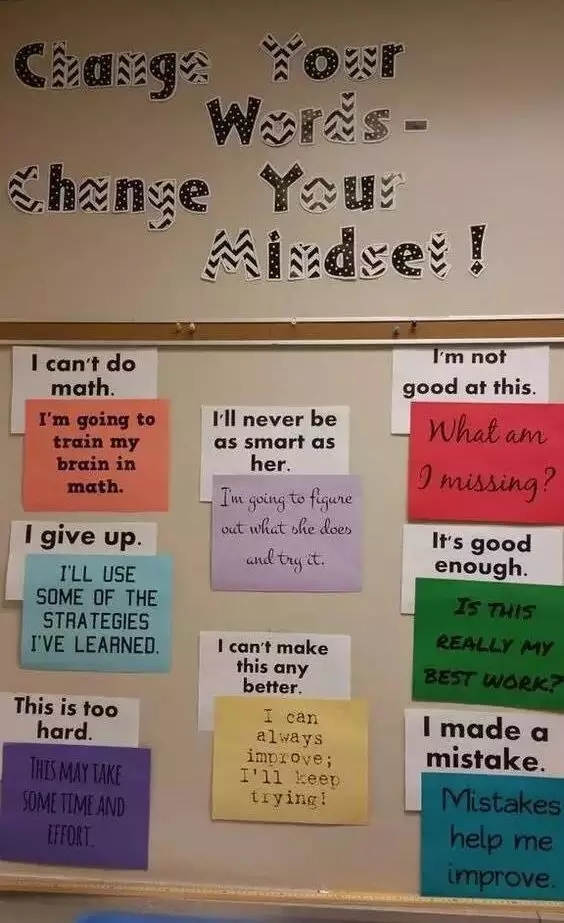 Change Your
Words-
Change Your
Mindset!
I can't do
math.
I'm going to
train my
brain in
math.
I give up.
I'LL USE
SOME OF THE
STRATEGIES
I'VE LEARNED.
This is too
hard.
THIS MAY TAKE
SOME TIME AND
EFFORT.
I'll never be
as smart as
her.
I'm going to figure
out what she does
and try it.
I can't make
this any
better.
I can
always
improve;
I'll keep
trying!
I'm not
good at this.
What am
I missing?
It's good
enough.
IS THIS
REALLY MY
BEST WORK?
I made a
mistake.
Mistakes
help me
improve.